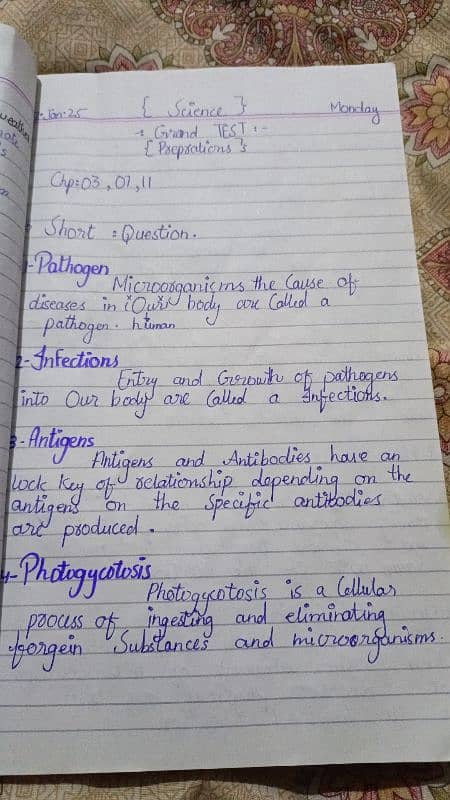 Jan-25 { Science } Monday
-: Grand TEST :-
{ Preprations }
Chp:03, 07, 11
Short : Question.
1-Pathogen
Microorganisms the Cause of
diseases in "Our" body are Called a
pathogen. human
2-Infections
Entry and Growth of pathogens
into Our body are Called a Infections.
3-Antigens
Antigens and Antibodies have an
lock key of relationship depending on the
antigens on the specific antibodies
are produced.
4-Photogycotosis
Photogycotosis is a Cellular
process of ingesting and eliminating
forgein Substances and microorganisms.